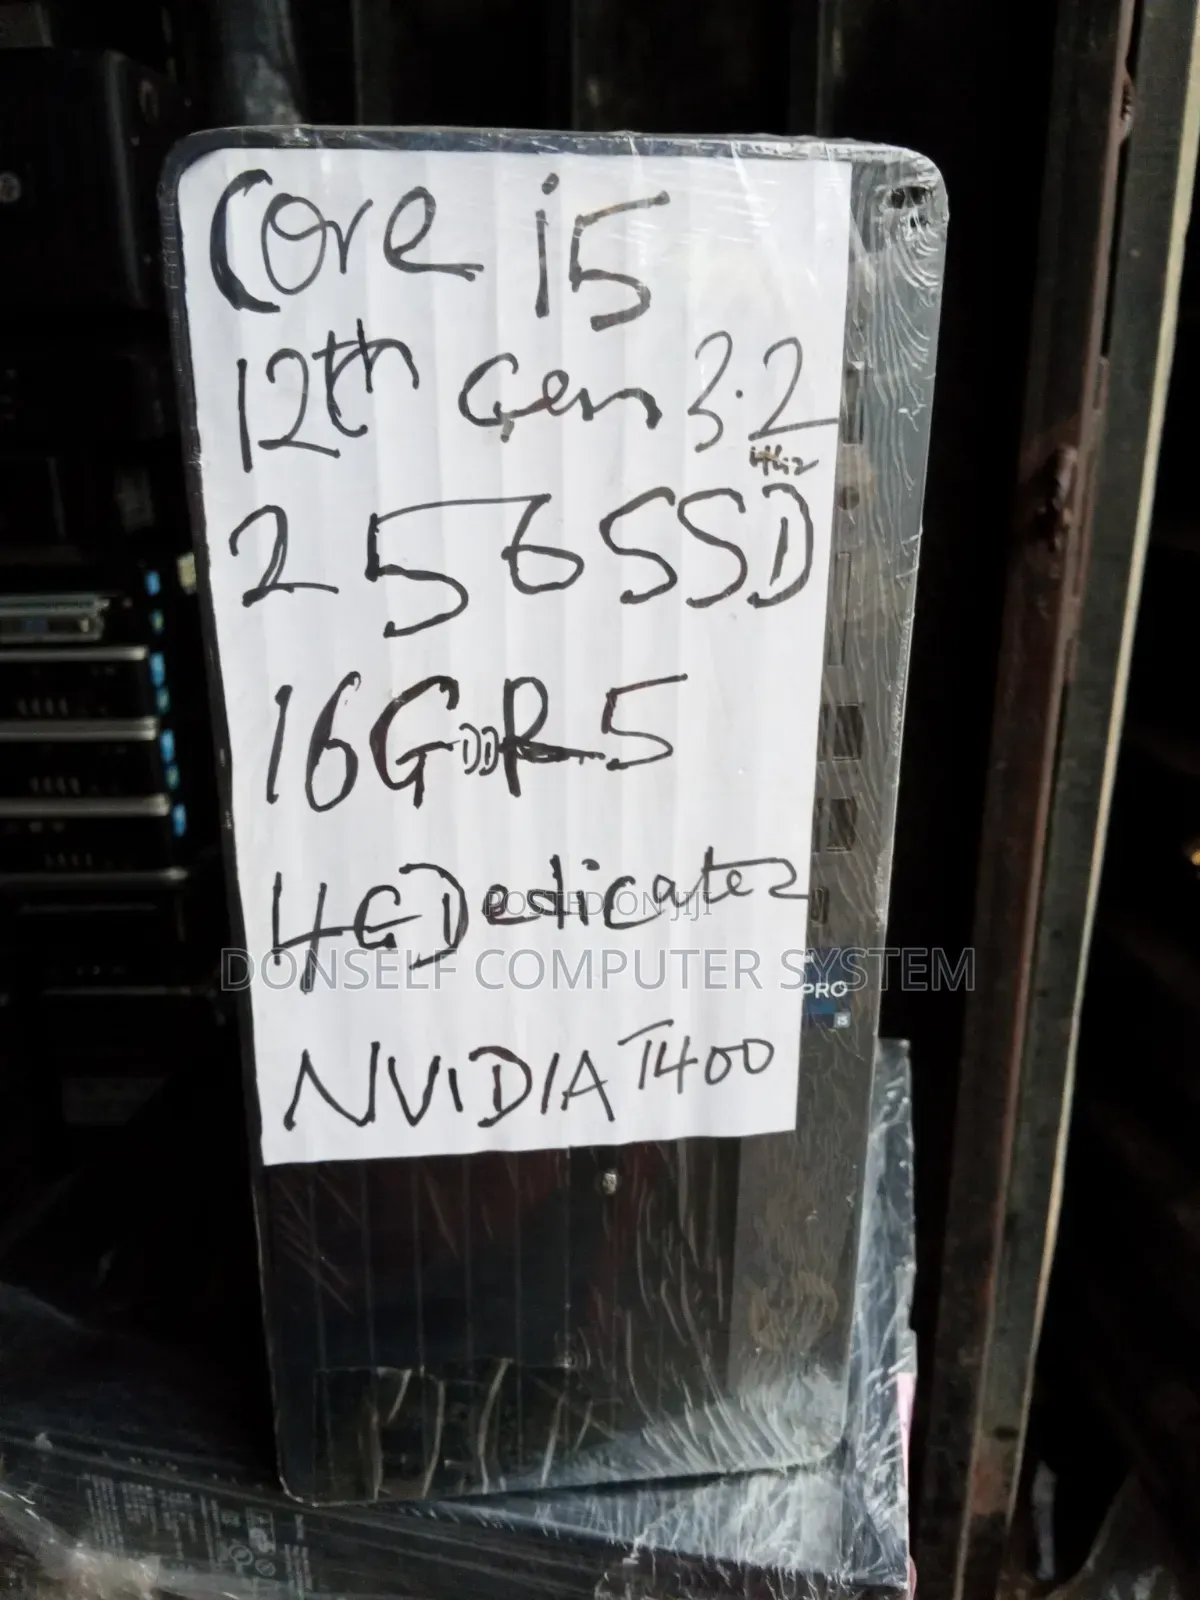 Core i5
12th Gen 3.2
256 SSD
16G DDR5
4G Dedicated
POSTED ON JIJI
DONSELF COMPUTER SYSTEM
PRO
i5
NVIDIA T400